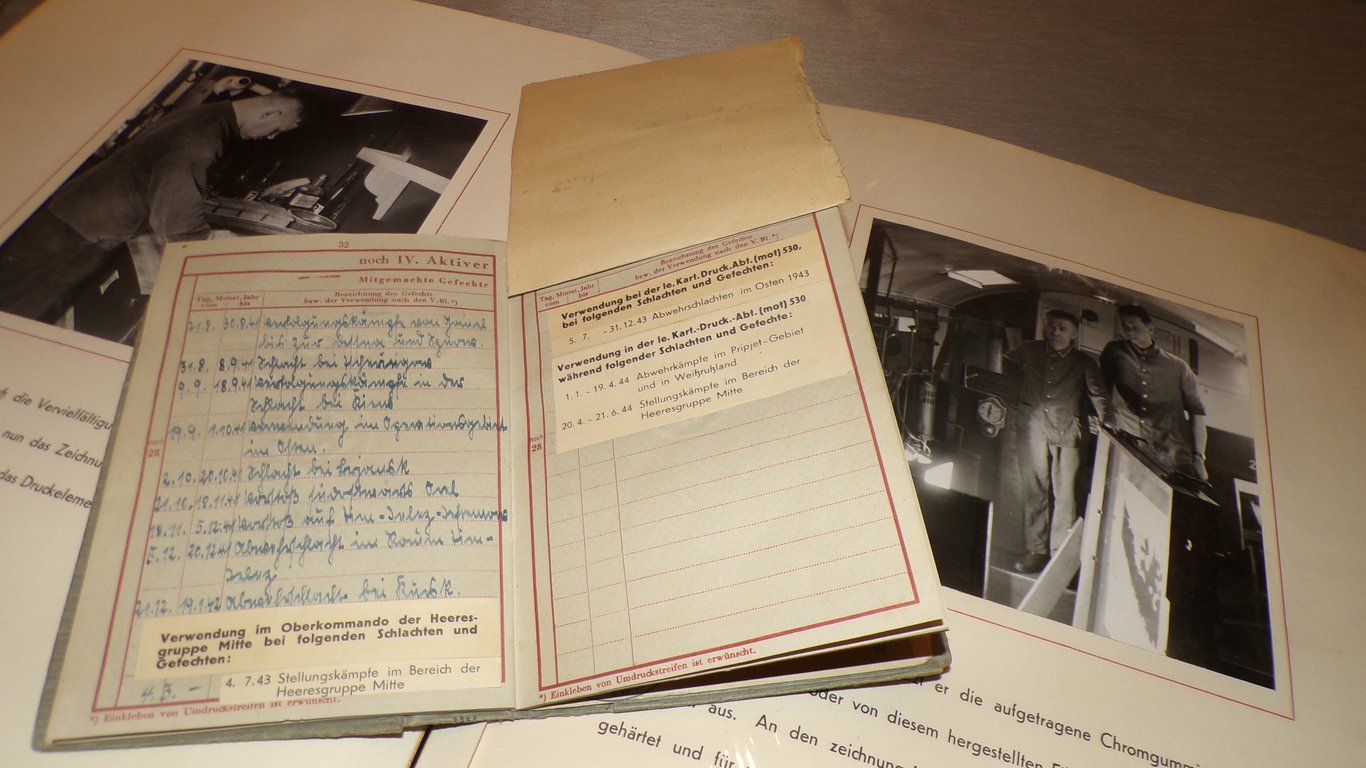 32
noch IV. Aktiver
Mitgemachte Gefechte
Tag, Monat, Jahr
vom bis
Bezeichnung des Gefechts
bzw. der Verwendung nach den V. Bl. *)
21.8. 30.8.41 Verfolgungskämpfe von
bis zur Desna und
31.8. 8.9.41 Schlacht bei
9.9. 18.9.41 Verfolgungskämpfe in der
Schlacht bei Kiew
19.9. 1.10.41 Verwendung im Operationsgebiet
im Osten.
noch
28
2.10. 20.10.41 Schlacht bei Brjansk
21.10. 18.11.41 Vorstoß
18.11. 5.12.41 Vorstoß auf Tim-Jelez-
5.12. 20.12.41 Abwehrschlacht im Raum Tim-
Jelez
21.12. 19.1.42 Abwehrschlacht bei Kursk.
Verwendung im Oberkommando der Heeres-
gruppe Mitte bei folgenden Schlachten und
Gefechten:
4.3. - 4. 7.43 Stellungskämpfe im Bereich der
Heeresgruppe Mitte
*) Einkleben von Umdruckstreifen ist erwünscht.
Bezeichnung des Gefechts
bzw. der Verwendung nach den V. Bl. *)
Tag, Monat, Jahr
vom bis
Verwendung bei der le. Kart. Druck. Abt. (mot) 530,
bei folgenden Schlachten und Gefechten:
5. 7. -31.12. 43 Abwehrschlachten im Osten 1943
Verwendung in der le. Kart.-Druck.-Abt. (mot) 530
während folgender Schlachten und Gefechte:
1. 1. - 19. 4. 44 Abwehrkämpfe im Pripjet-Gebiet
und in Weißrußland
20. 4. - 21. 6. 44 Stellungskämpfe im Bereich der
Heeresgruppe Mitte
noch
28
*) Einkleben von Umdruckstreifen ist erwünscht.
die Vervielfältigu
nun das Zeichnu
das Druckeleme
er die aufgetragene Chromgummi
oder von diesem hergestellten
aus. An den zeichnung
gehärtet und für